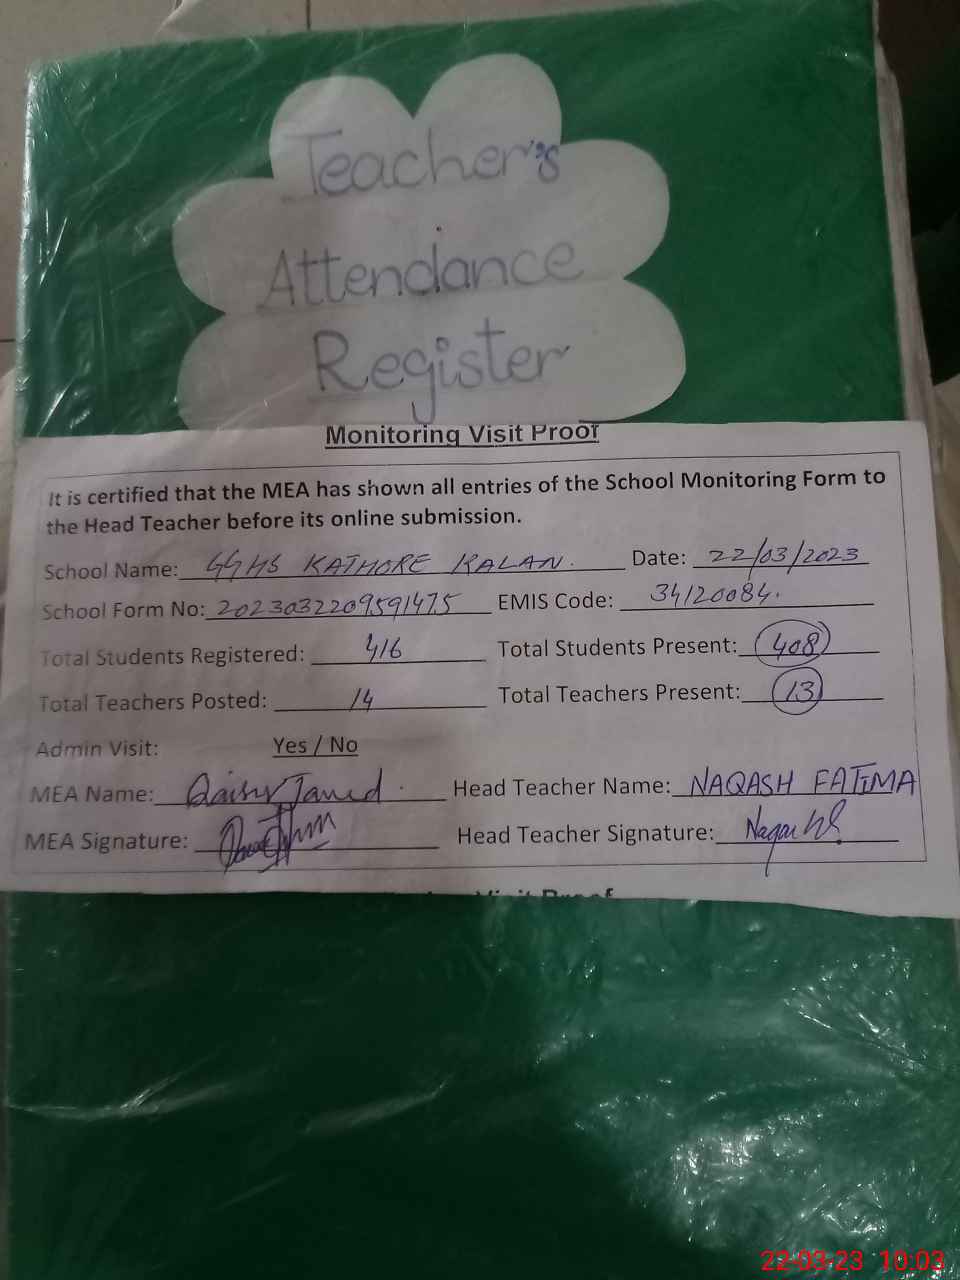 Teacher's
Attendance
Register
Monitoring Visit Proof
It is certified that the MEA has shown all entries of the School Monitoring Form to
the Head Teacher before its online submission.
School Name: GGHS KATHORE KALAN. Date: 22/03/2023
School Form No: 2023032209591475 EMIS Code: 34120084.
Total Students Registered: 416 Total Students Present: 408
Total Teachers Posted: 14 Total Teachers Present: 13
Admin Visit: Yes / No
MEA Name: Qaiser Javed. Head Teacher Name: NAQASH FATIMA
MEA Signature: Head Teacher Signature:
Visit Proof
22-03-23 10:03